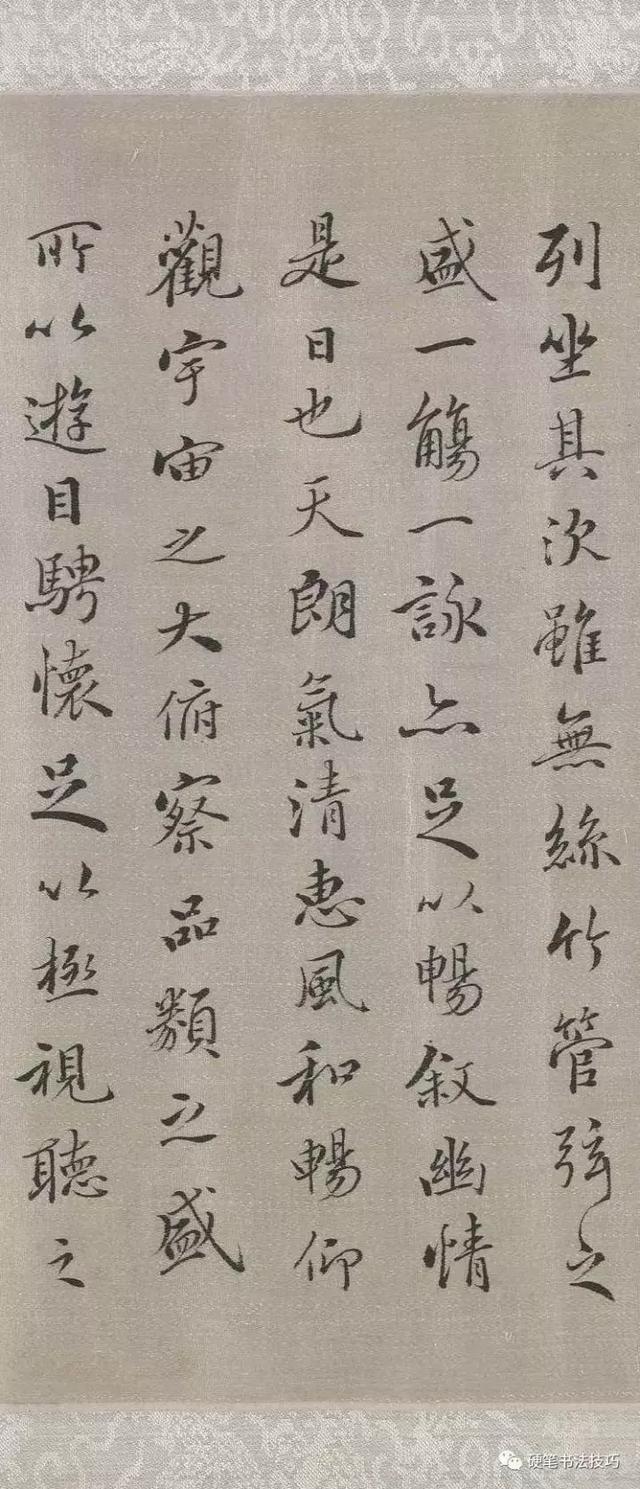 列坐其次雖無絲竹管弦之
盛一觴一詠亦足以暢敘幽情
是日也天朗氣清惠風和暢仰
觀宇宙之大俯察品類之盛
所以遊目騁懷足以極視聽之
硬笔书法技巧